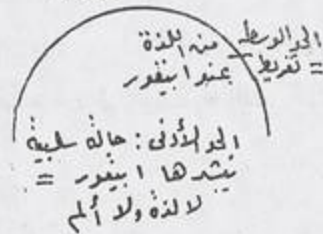 الحد الوسط من اللذة
= تفريط عند ابيقور
الحد الأدنى : حالة سلبية
ينشدها ابيقور =
لا لذة ولا ألم